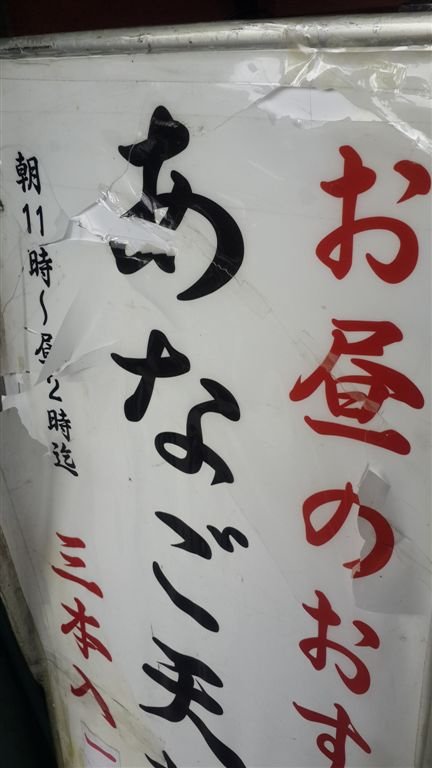 お昼のおす
あなご天
朝11時～昼2時迄
三本入